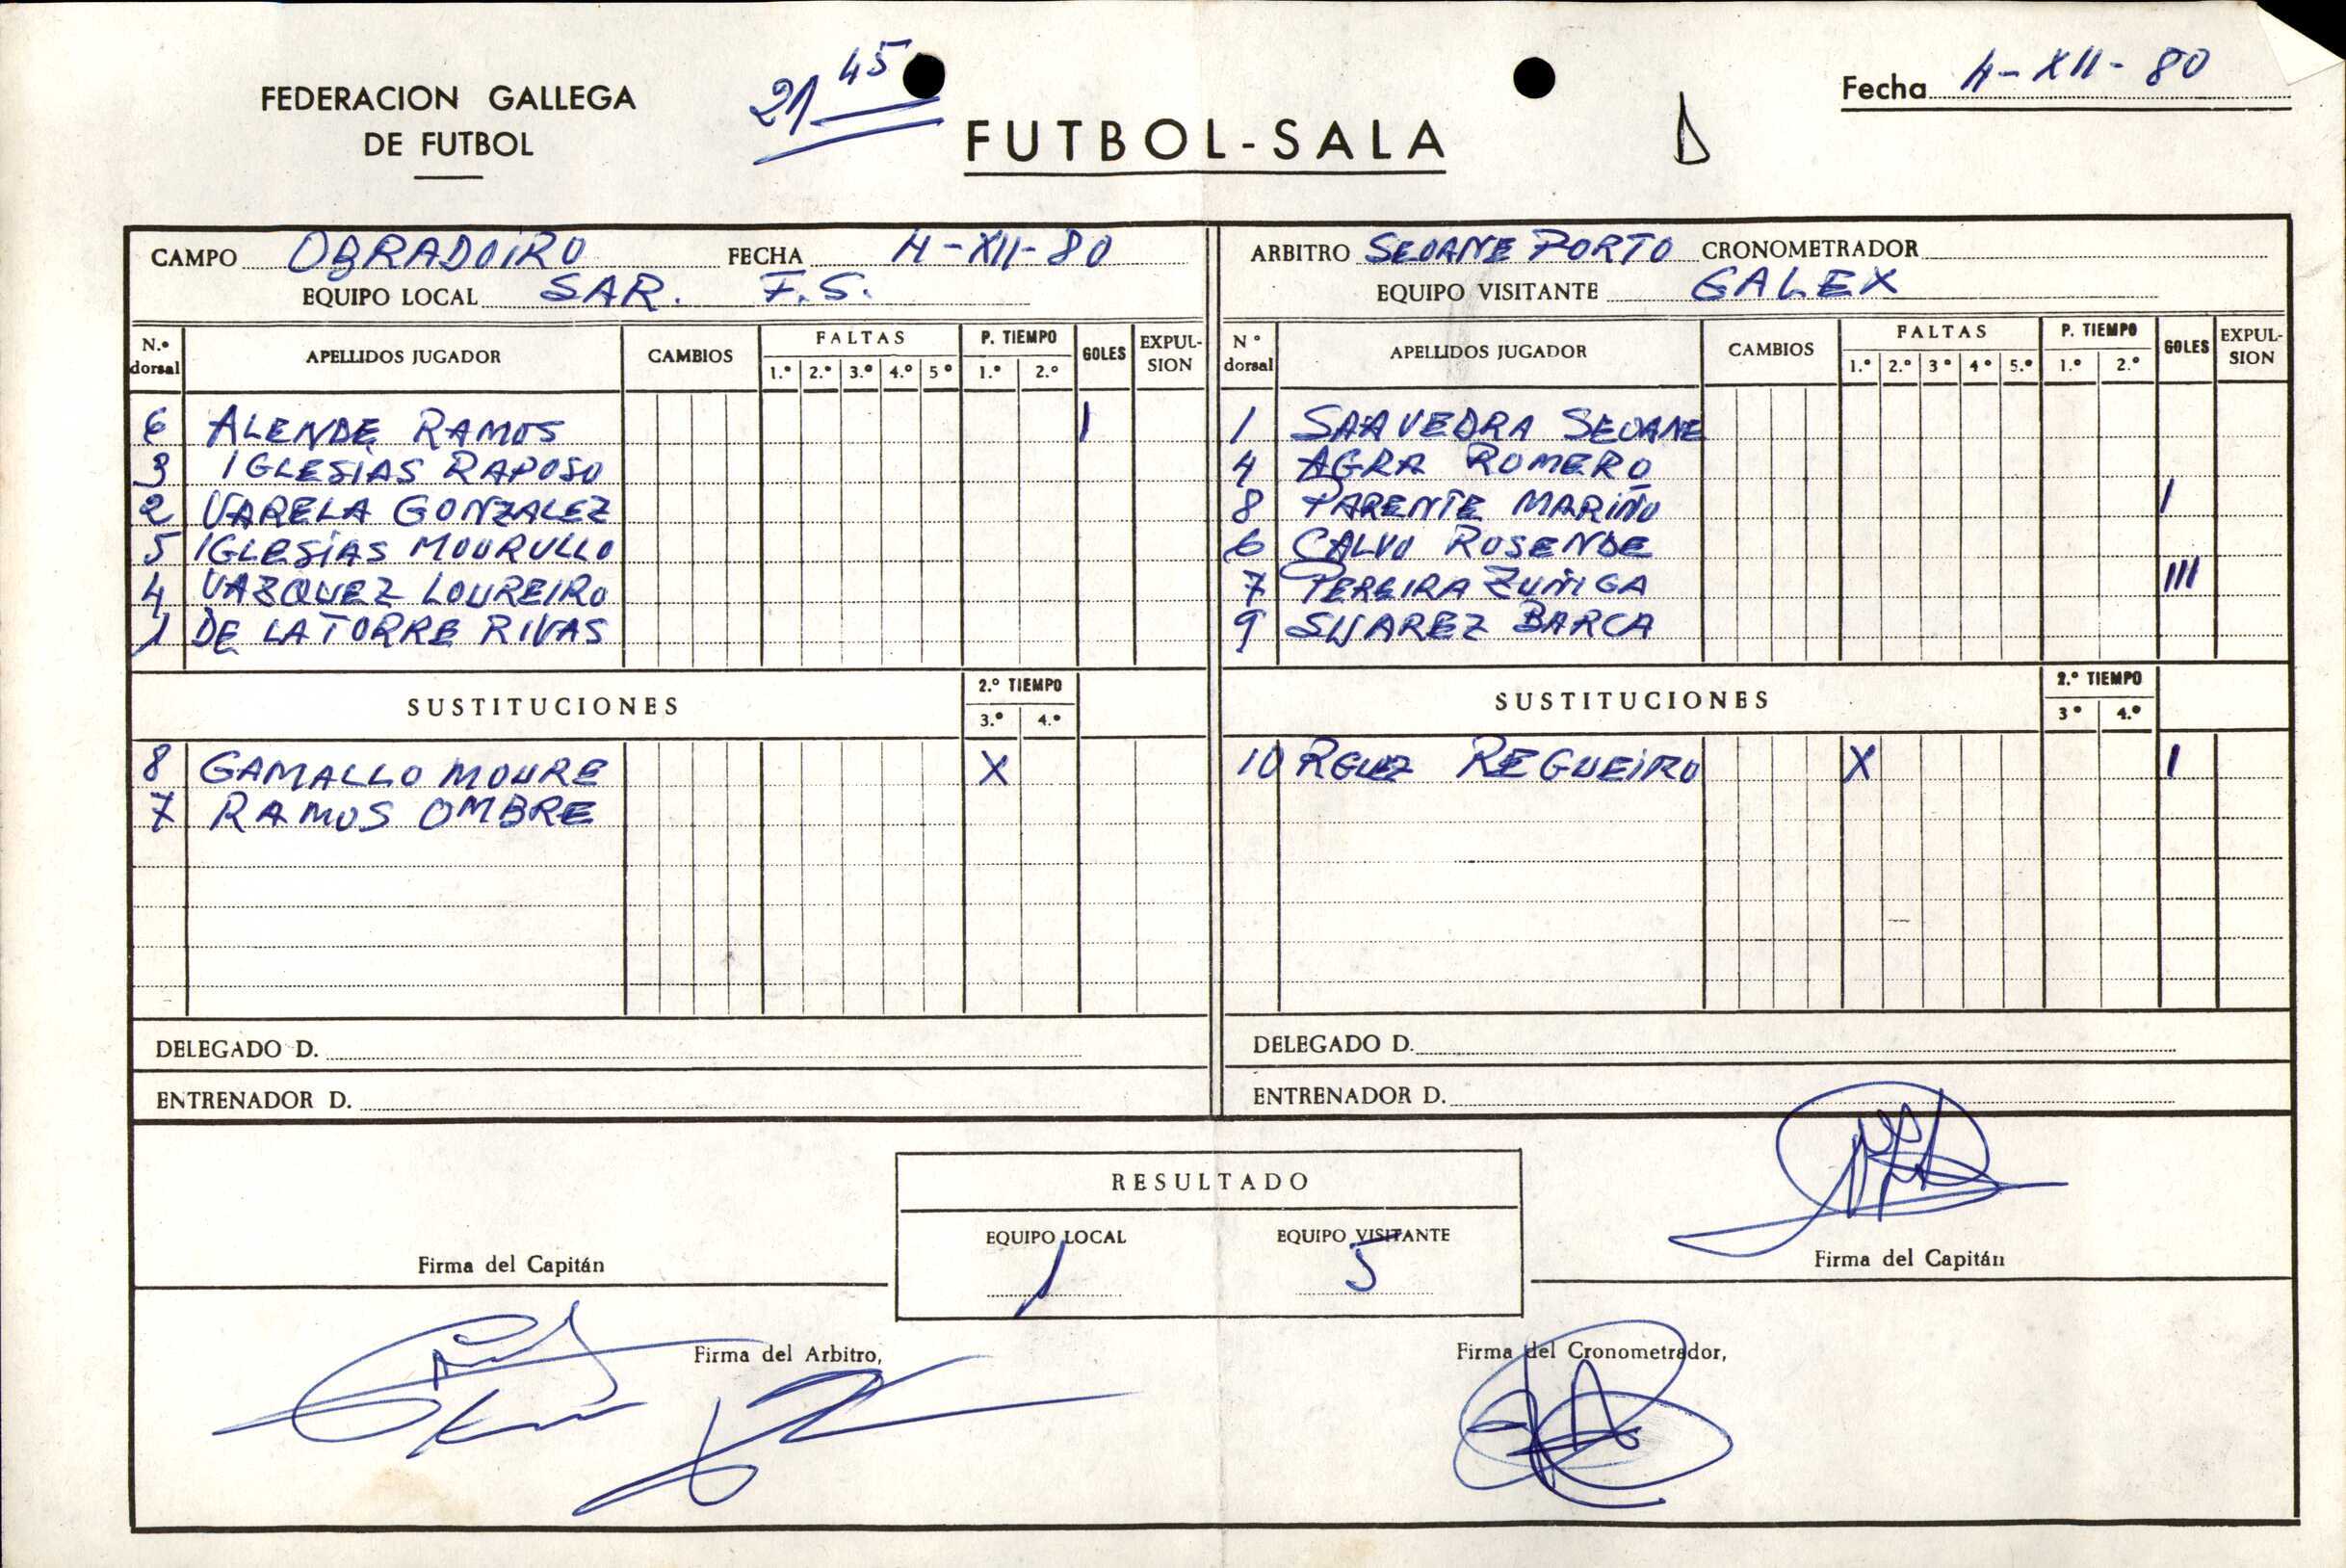 FEDERACION GALLEGA
DE FUTBOL
21 45
FUTBOL-SALA
D
Fecha 4-XII-80
CAMPO OBRADOIRO FECHA 4-XII-80
EQUIPO LOCAL SAR. F.S.
N.º dorsal APELLIDOS JUGADOR CAMBIOS FALTAS P. TIEMPO GOLES EXPULSION
1.º 2.º 3.º 4.º 5º 1.º 2.º
6 ALENDE RAMOS I
3 IGLESIAS RAPOSO
2 VARELA GONZALEZ
5 IGLESIAS MOURULLO
4 VAZQUEZ LOUREIRO
1 DE LA TORRE RIVAS
SUSTITUCIONES 2.º TIEMPO
3.º 4.º
8 GAMALLO MOURE X
7 RAMOS OMBRE
DELEGADO D.
ENTRENADOR D.
ARBITRO SEOANE PORTO CRONOMETRADOR
EQUIPO VISITANTE GALEX
Nº dorsal APELLIDOS JUGADOR CAMBIOS FALTAS P. TIEMPO GOLES EXPULSION
1.º 2.º 3º 4º 5.º 1.º 2.º
1 SAAVEDRA SEOANE
4 AGRA ROMERO
8 PARENTE MARIÑO I
6 CALVO ROSENDE
7 PEREIRA ZUÑIGA III
9 SUAREZ BARCA
SUSTITUCIONES 2.º TIEMPO
3º 4.º
10 RGUEZ REGUEIRO X I
DELEGADO D.
ENTRENADOR D.
RESULTADO
EQUIPO LOCAL EQUIPO VISITANTE
1 5
Firma del Capitán
Firma del Capitán
Firma del Arbitro,
Firma del Cronometrador,